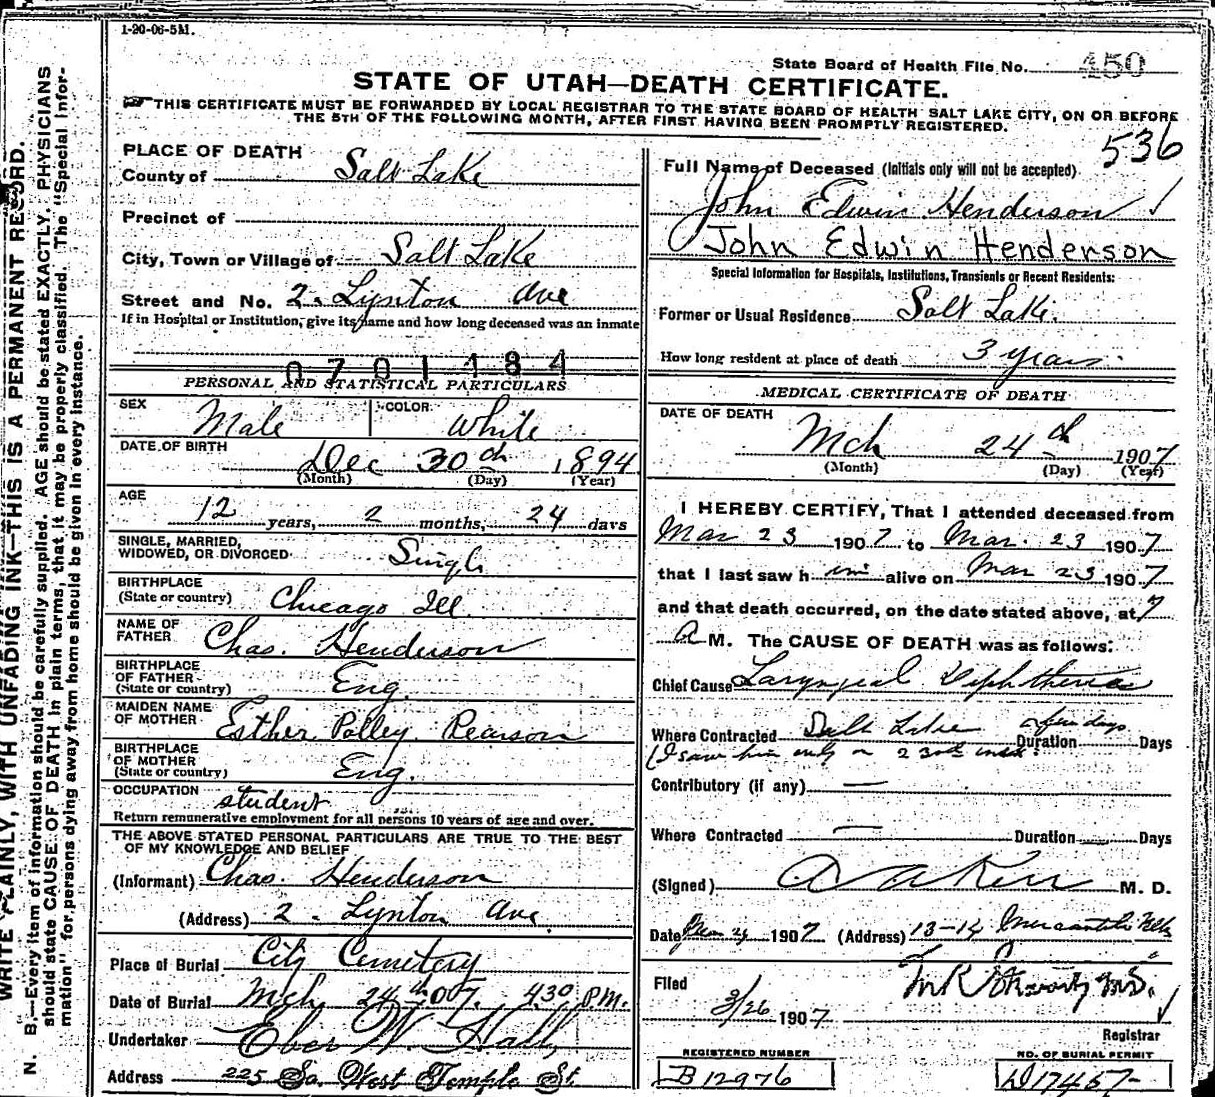 1-20-06-5M.
State Board of Health File No. 450
STATE OF UTAH—DEATH CERTIFICATE.
THIS CERTIFICATE MUST BE FORWARDED BY LOCAL REGISTRAR TO THE STATE BOARD OF HEALTH SALT LAKE CITY, ON OR BEFORE
THE 5TH OF THE FOLLOWING MONTH, AFTER FIRST HAVING BEEN PROMPTLY REGISTERED.
536
PLACE OF DEATH
County of Salt Lake
Precinct of
City, Town or Village of Salt Lake
Street and No. 2. Lynton Ave
If in Hospital or Institution, give its name and how long deceased was an inmate
0701484
PERSONAL AND STATISTICAL PARTICULARS
SEX Male COLOR White
DATE OF BIRTH Dec 30th 1894
(Month) (Day) (Year)
AGE 12 years, 2 months, 24 days
SINGLE, MARRIED,
WIDOWED, OR DIVORCED Single
BIRTHPLACE
(State or country) Chicago Ill
NAME OF
FATHER Chas. Henderson
BIRTHPLACE
OF FATHER
(State or country) Eng.
MAIDEN NAME
OF MOTHER Esther Polley Pearson
BIRTHPLACE
OF MOTHER
(State or country) Eng.
OCCUPATION student
Return remunerative employment for all persons 10 years of age and over.
THE ABOVE STATED PERSONAL PARTICULARS ARE TRUE TO THE BEST
OF MY KNOWLEDGE AND BELIEF
(Informant) Chas. Henderson
(Address) 2. Lynton Ave
Place of Burial City Cemetery
Date of Burial Mch 24th 07. 430 P.M.
Undertaker Eber W. Hall
Address 225 So. West Temple St.
Full Name of Deceased (Initials only will not be accepted)
John Edwin Henderson
John Edwin Henderson
Special Information for Hospitals, Institutions, Transients or Recent Residents:
Former or Usual Residence Salt Lake.
How long resident at place of death 3 years.
MEDICAL CERTIFICATE OF DEATH
DATE OF DEATH Mch 24th 1907
(Month) (Day) (Year)
I HEREBY CERTIFY, That I attended deceased from
Mar 23 1907 to Mar. 23 1907
that I last saw him alive on Mar 23 1907
and that death occurred, on the date stated above, at 7
A M. The CAUSE OF DEATH was as follows:
Chief Cause Laryngeal Diphtheria
Where Contracted Salt Lake Duration a few days Days
(I saw him only on 23rd inst.
Contributory (if any) —
Where Contracted — Duration Days
(Signed) M. D.
Date 1907 (Address) 13-14
Filed 3/26 1907
Registrar
REGISTERED NUMBER
B 12976
NO. OF BURIAL PERMIT
D17457
N. B.—Every item of information should be carefully supplied. AGE should be stated EXACTLY. PHYSICIANS
should state CAUSE OF DEATH in plain terms, that it may be properly classified. The "Special Infor-
mation" for persons dying away from home should be given in every instance.
WRITE PLAINLY, WITH UNFADING INK—THIS IS A PERMANENT RECORD.